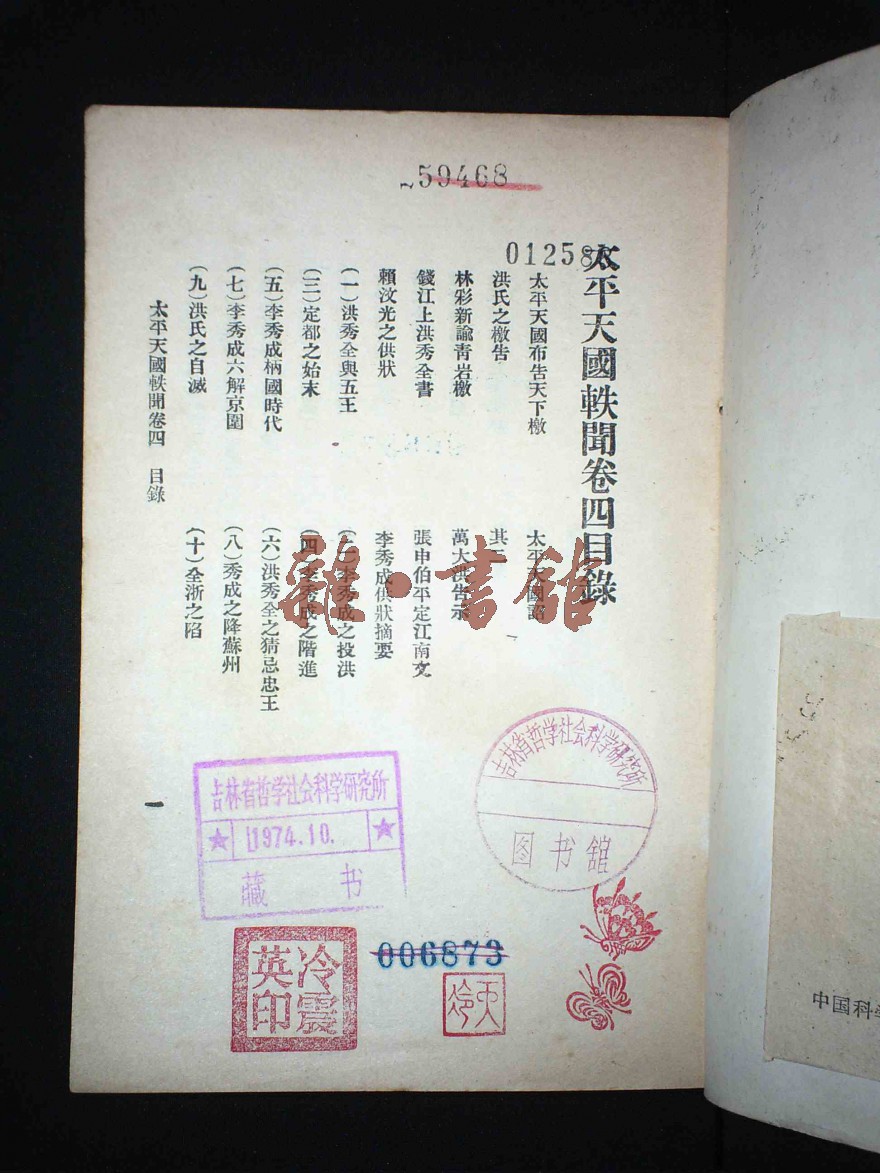 59468
01258
太平天國軼聞卷四目錄
太平天國布告天下檄
太平天國詔
洪氏之檄告
其
林彩新諭青岩檄
萬大洪告示
錢江上洪秀全書
張申伯平定江南文
賴汶光之供狀
李秀成供狀摘要
(一)洪秀全與五王
(二)李秀成之投洪
(三)定都之始末
(四)李秀成之階進
(五)李秀成柄國時代
(六)洪秀全之猜忌忠王
(七)李秀成六解京圍
(八)秀成之降蘇州
(九)洪氏之自滅
(十)全浙之陷
太平天國軼聞卷四 目錄
一
雜·書館
吉林省哲学社会科学研究所
图书舘
吉林省哲学社会科学研究所
1974.10.
藏书
006873
冷震英印
中国科